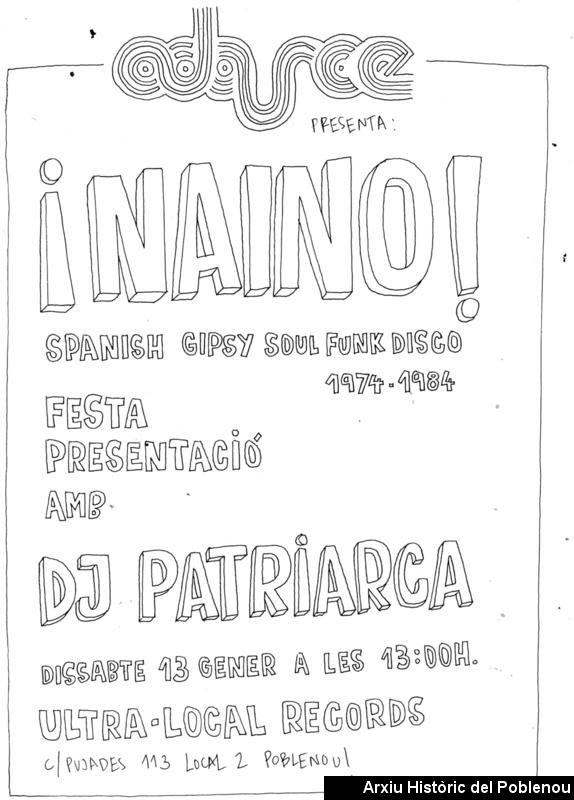 adarce
PRESENTA:
¡NAINO!
SPANISH GIPSY SOUL FUNK DISCO
1974-1984
FESTA
PRESENTACIÓ
AMB
DJ PATRIARCA
DISSABTE 13 GENER A LES 13:00H.
ULTRA-LOCAL RECORDS
C/PUJADES 113 LOCAL 2 POBLENOU
Arxiu Històric del Poblenou